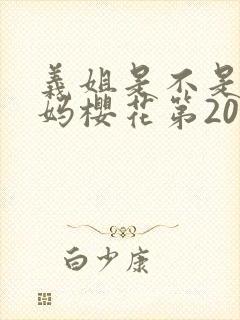 義姐是不是
妈櫻花第20
白少康